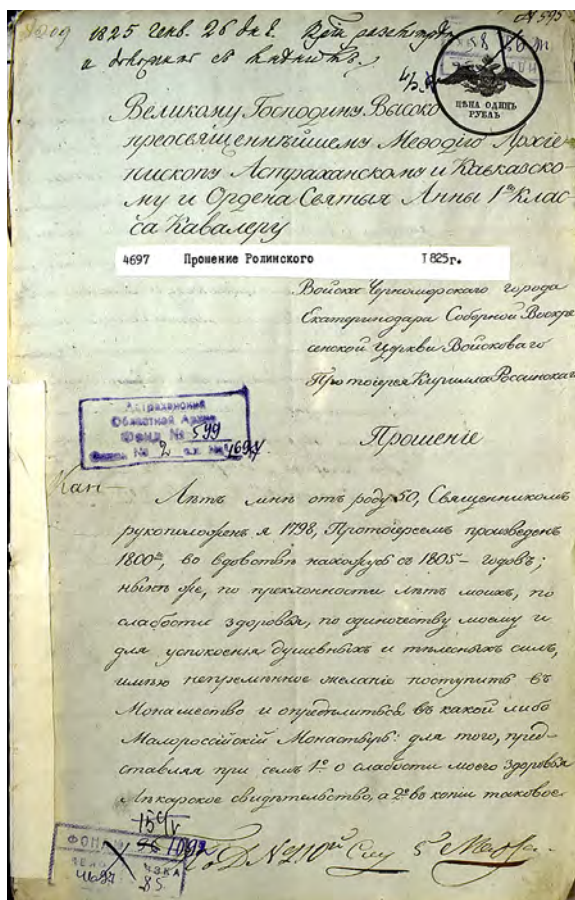 № 595
1825 генв. 26 дня.
ЦѢНА ОДИНЪ
РУБЛЬ
Великому Господину Высоко
преосвященнѣйшему Меѳодію Архіе-
пископу Астраханскому и Кавказско-
му и Ордена Святыя Анны 1го Клас-
са Кавалеру
4697 Прошение Ролинского 1825г.
Войска Черноморскаго города
Екатеринодара Соборной Воскре
сенской Церкви Войсковаго
Протоіерея Кирилла Россинскаго
Астраханский
Областной Архив
Фонд № 599
№ 2 4697
Прошеніе
Лѣтъ мнѣ отъ роду 50, Священникомъ
рукоположенъ я 1798, Протоіереемъ произведенъ
1800го, во вдовствѣ нахожусь съ 1805– годовъ;
нынѣ же, по преклонности лѣтъ моихъ, по
слабости здоровья, по одиночеству моему и
для успокоенія душевныхъ и тѣлесныхъ силъ,
имѣю непремѣнное желаніе поступить въ
Монашество и опредѣлиться въ какой либо
Малороссійскій Монастырь: для того, пред-
ставляя при семъ 1е о слабости моего здоровья
Лѣкарское свидѣтельство, а 2е во копіи таковое
ФОНД
4697 85